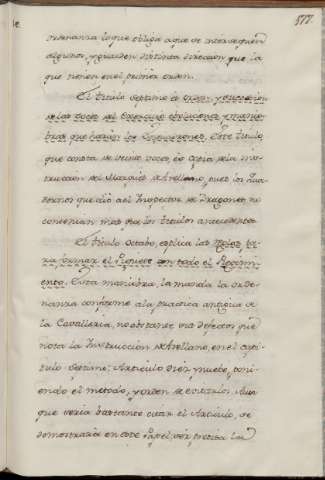 577.
ordenanza lo que obliga a que se intersequen
algunos, y guarden distinta direccion que la
que tienen en el primer orden.
El titulo septimo es orden, y succesion
de las voces del Exercicio, evoluciones, y maniobras
que haràn los Esquadrones. Este titulo,
que consta de veinte voces, es copia de la Instruccion
del Marquès de Arellano, pues los Quadernos
que dió a el Inspector de Dragones, no
contenian mas que los titulos antecedentes.
El titulo Octabo, explica las Reglas, para
formar el Piquete con todo el Regimiento.
Esta maniobra, la manda la ordenanza
conforme a la practica antigua de
la Cavalleria, no obstante los defectos que
nota la Instruccion de Arellano, en el capitulo
septimo: Articulo diez, y nueve, poniendo
el metodo, y orden de evitarlos. Aunque
seria bastante citar el Articulo, se
demostrarà en este Papel, por precisa la